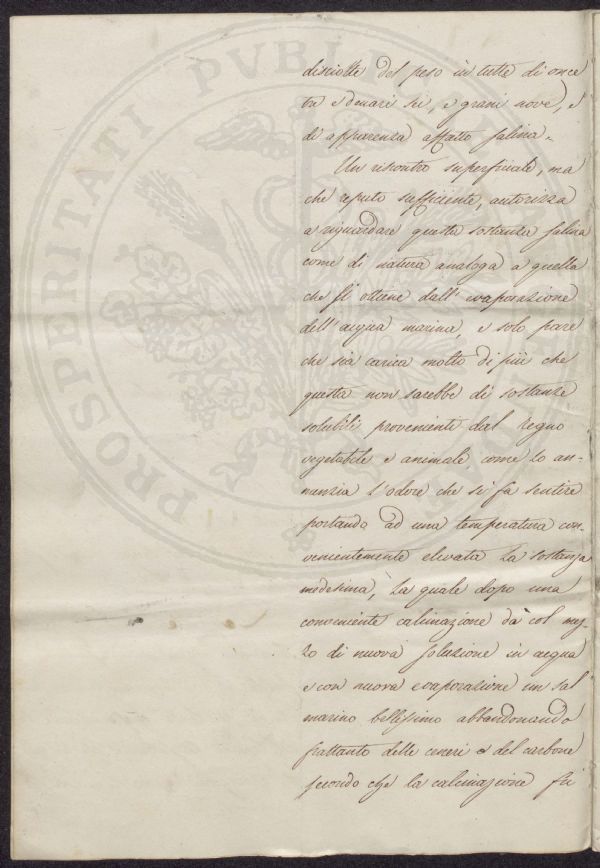 disciolte del peso in tutte di once
tre e denari sei, e grani nove, e
di apparenza affatto salina.
Un riscontro superficiale, ma
che reputo sufficiente, autorizza
a riguardare questa sostanza salina
come di natura analoga a quella
che si ottiene dall' evaporazione
dell' acqua marina, e solo pare
che sia carica molto di più che
questa non sarebbe di sostanze
solubili proveniente dal Regno
vegetabile e animale come lo an-
nunzia l'odore che si fa sentire
portando ad una temperatura con-
venientemente elevata la sostanza
medesima, la quale dopo una
conveniente calcinazione dà col mez-
zo di nuova soluzione in acqua
e con nuova evaporazione un sal
marino bellissimo abbandonando
frattanto delle ceneri e del carbone
secondo che la calcinazione fù
PROSPERITATI PVBLICAE